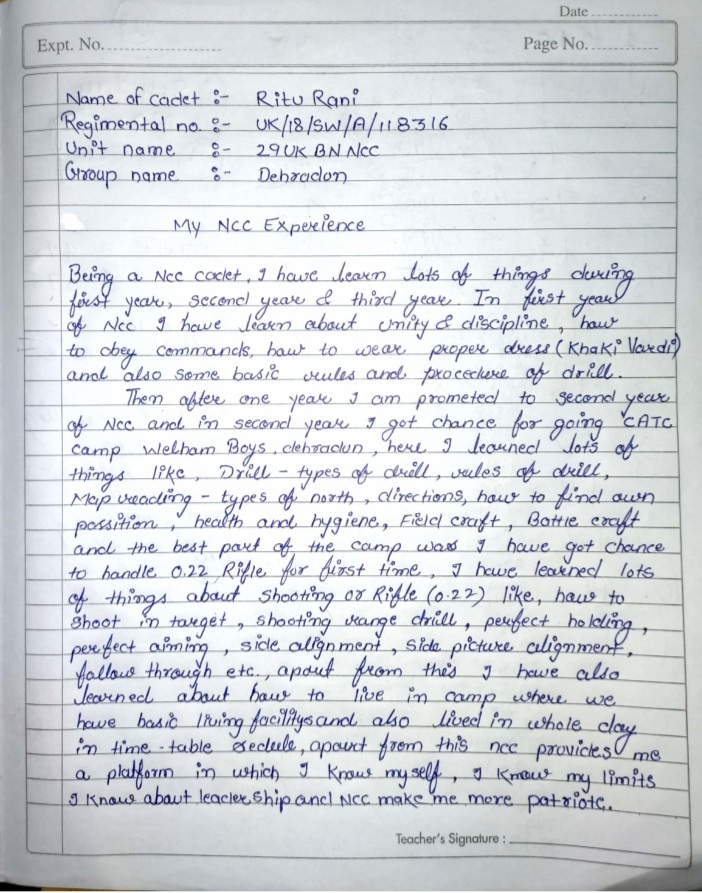 Date
Expt. No.
Page No.
Name of cadet :- Ritu Rani
Regimental no. :- UK/18/SW/A/118316
Unit name :- 29 UK BN NCC
Group name :- Dehradon
My NCC Experience
Being a Ncc cadet, I have learn lots of things during
first year, second year & third year. In first year
of Ncc I have learn about unity & discipline, how
to obey commands, how to wear proper dress (Khaki Vardi)
and also some basic rules and procedure of drill.
Then after one year I am prometed to second year
of Ncc and in second year I got chance for going CATC
camp Welham Boys, dehradun, here I learned lots of
things like, Drill - types of drill, rules of drill,
Map reading - types of north, directions, how to find own
possition, health and hygiene, Field craft, Battle craft
and the best part of the camp was I have got chance
to handle 0.22 Rifle for first time, I have learned lots
of things about shooting or Rifle (0.22) like, how to
shoot in target, shooting range drill, perfect holding,
perfect aiming, side alignment, side picture alignment,
follow through etc., apart from this I have also
learned about how to live in camp where we
have basic living facilitys and also lived in whole day
in time-table, apart from this ncc provides me
a platform in which I know myself, I know my limits
I know about leadership and NCC make me more patriotc.
Teacher's Signature :